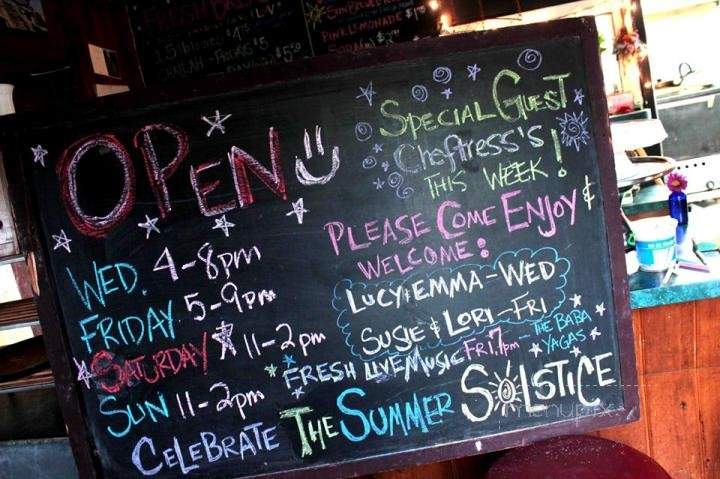 PINK LEMONADE $1
OPEN
WED. 4-8pm
FRIDAY 5-9pm
SATURDAY 11-2pm
SUN 11-2pm
SPECIAL GUEST
Cheftress's
THIS WEEK!
PLEASE COME ENJOY &
WELCOME:
LUCY & EMMA - WED
SUSIE & LORI - FRI
FRESH LIVE MUSIC FRI. 7pm - THE BABA
YAGAS
CELEBRATE THE SUMMER SOLSTICE
menupix